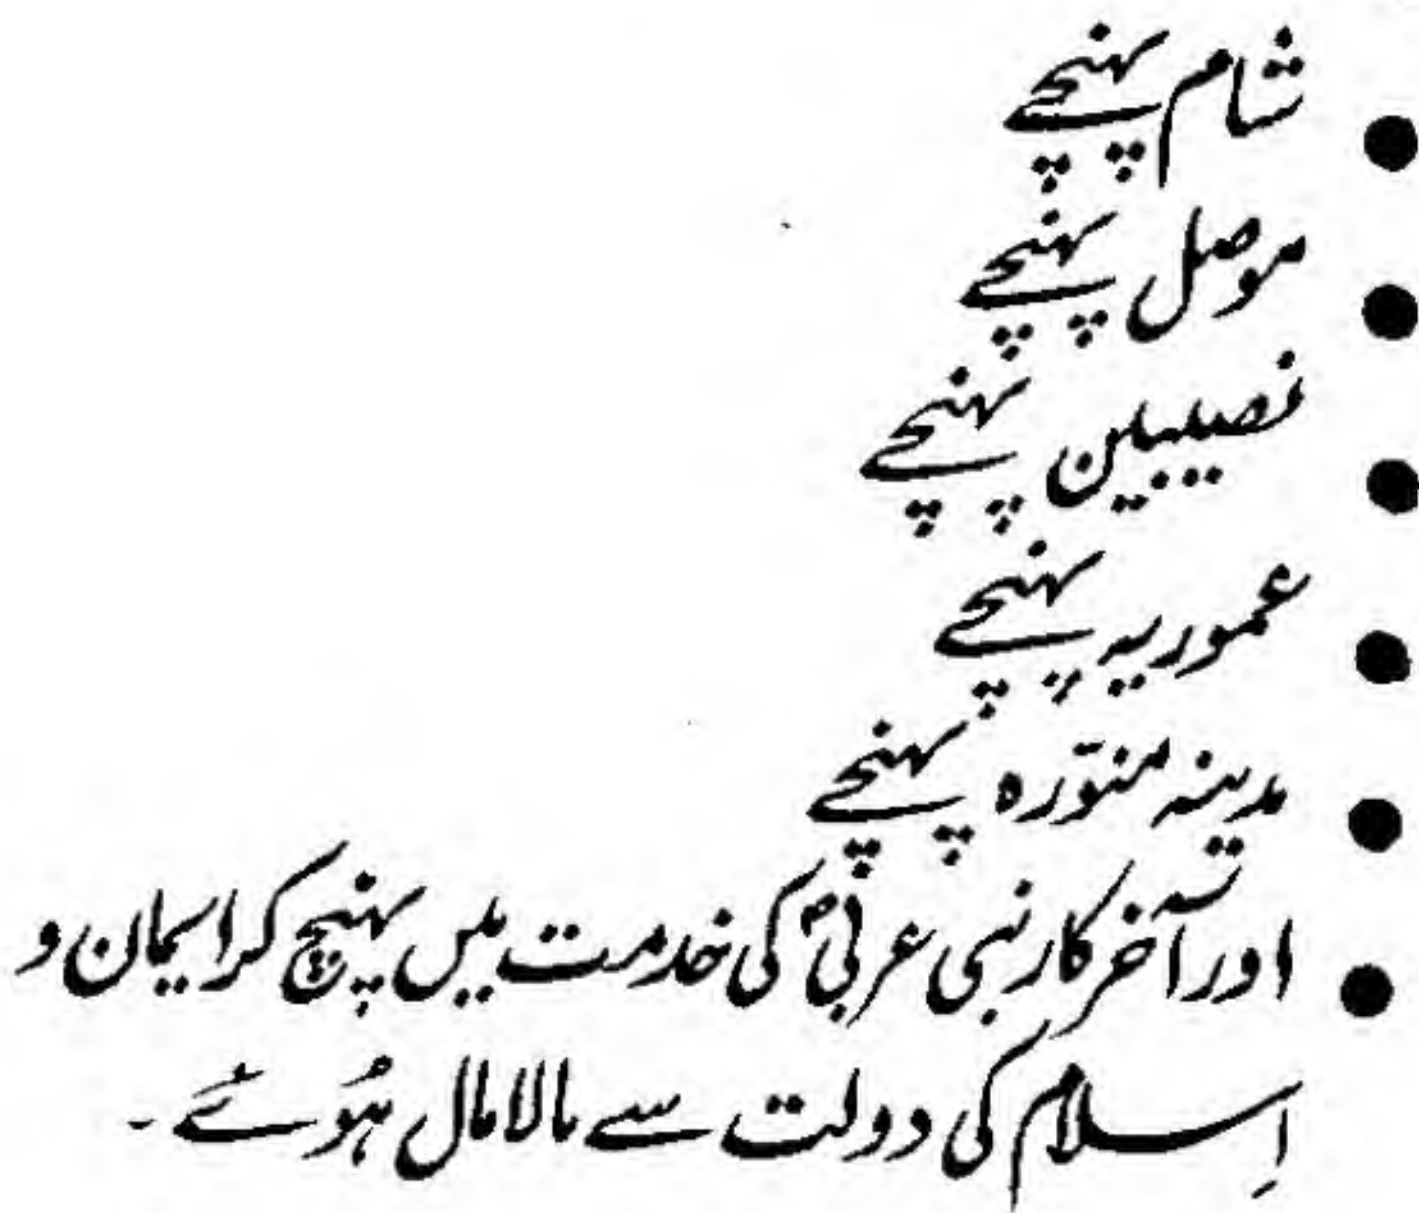 ● شام پہنچے
● موصل پہنچے
● نصیبین پہنچے
● عموریہ پہنچے
● مدینہ منوّرہ پہنچے
● اور آخر کار نبی عربیؐ کی خدمت میں پہنچ کر ایمان و
اِسلام کی دولت سے مالا مال ہُوئے۔